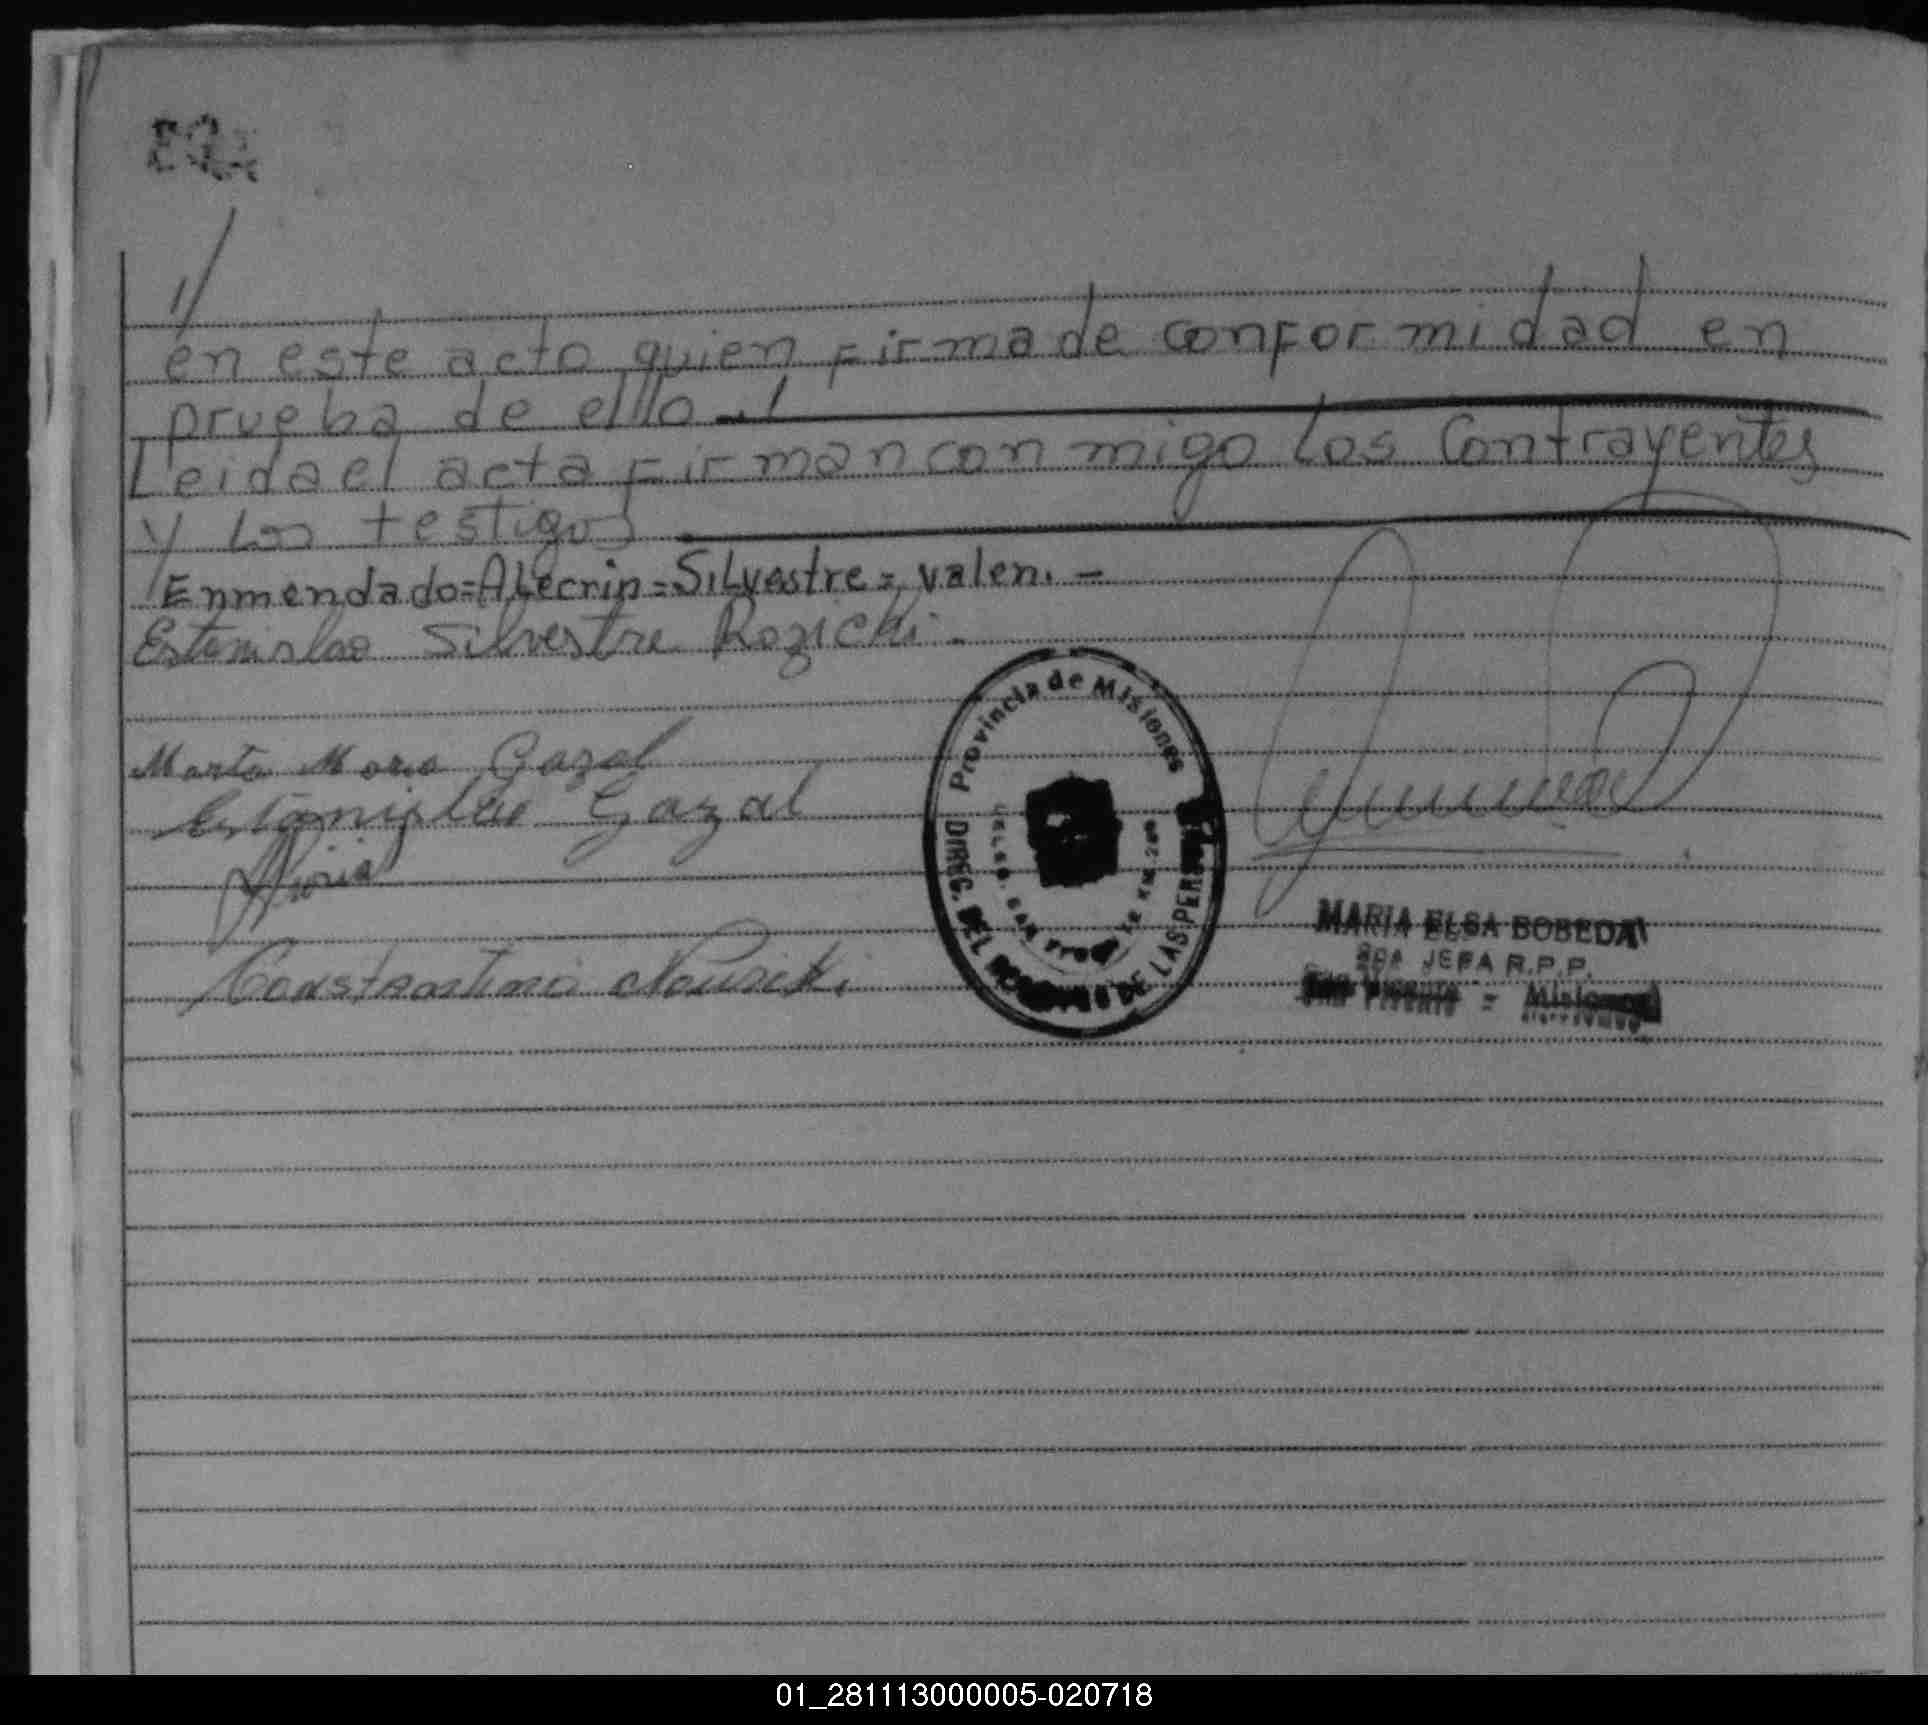 //
en este acto quien firma de conformidad en
prueba de elllo -.-/
Leida el acta firman con migo Los Contrayentes
y Los testigos
Enmendado=Alecrin=Silvestre= valen. -
Estanislao Silvestre Rozicki -
Marta Gazal
Estanislao Gazal
Constantino
Provincia de Misiones
DIREC. DEL REGISTRO DE LAS PERS
MARIA ELSA BOBEDA
JEFA R.P.P.
San Vicente = Misiones
01_281113000005-020718